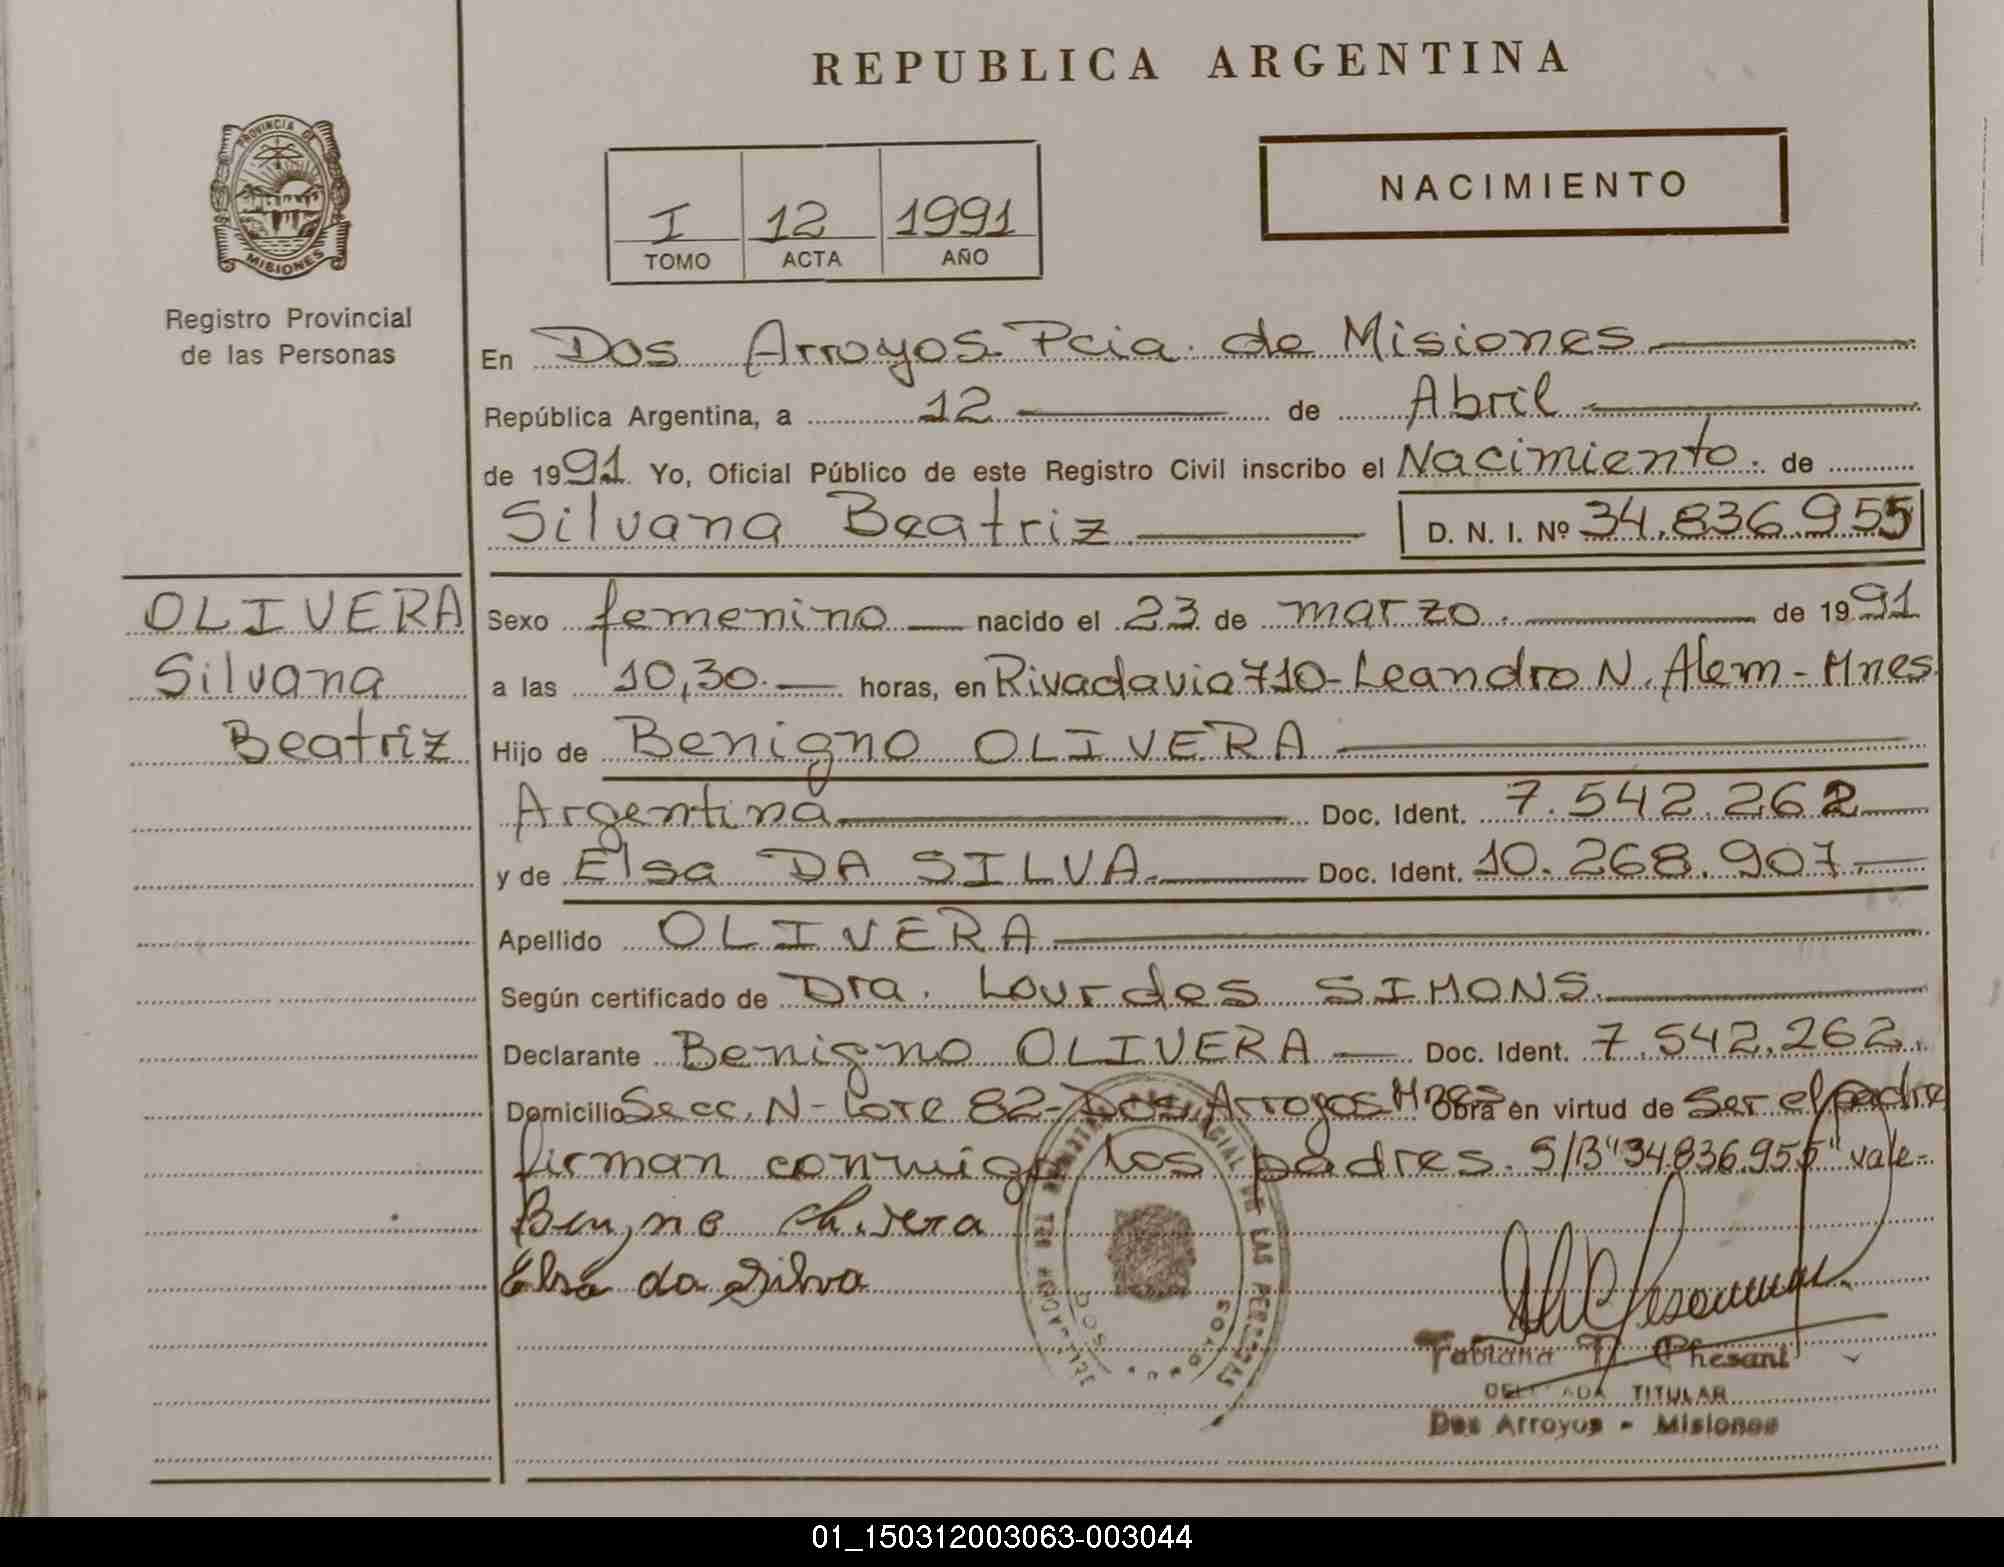 REPUBLICA ARGENTINA
PROVINCIA DE
MISIONES
Registro Provincial
de las Personas
I 12 1991
TOMO ACTA AÑO
NACIMIENTO
En Dos Arroyos Pcia. de Misiones
República Argentina, a 12 de Abril
de 1991 Yo, Oficial Público de este Registro Civil inscribo el Nacimiento. de
Silvana Beatriz D. N. I. Nº 34.836.955
OLIVERA
Silvana
Beatriz
Sexo femenino nacido el 23 de marzo. de 1991
a las 10,30. horas, en Rivadavia 710-Leandro N. Alem - Mnes.
Hijo de Benigno OLIVERA
Argentina Doc. Ident. 7.542.262
y de Elsa DA SILVA. Doc. Ident. 10.268.907.
Apellido OLIVERA
Según certificado de Dra. Lourdes SIMONS.
Declarante Benigno OLIVERA Doc. Ident. 7.542.262.
Domicilio Secc. N- Lote 82-Dos Arroyos Mnes Obra en virtud de Ser el padre
firman conmigo los padres. S/B "34.836.955" vale-
Elsa da Silva
DE LAS
DOS
Fabiana Chesani
TITULAR
Dos Arroyos - Misiones
01_150312003063-003044